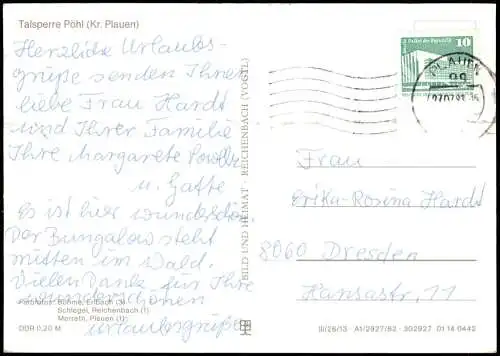 Talsperre Pöhl (Kr. Plauen)
Herzliche Urlaubs-
grüße senden Ihnen
liebe Frau Hardt
und Ihrer Familie
Ihre Margarete
u. Gatte
Es ist hier wunderschön.
Der Bungalow steht
mitten im Wald.
Vielen Dank für Ihre
wunderschönen
Urlaubsgrüße
Farbfotos: Böhme, Erlbach (3)
Schlegel, Reichenbach (1)
Morrath, Plauen (1)
DDR 0,20 M
BILD UND HEIMAT · REICHENBACH (VOGTL)
10
PLAUEN
99
Frau
Erika-Rosina Hardt
8060 Dresden
Hansastr. 11
III/26/13 A1/2927/82 · 302927 01 14 0442